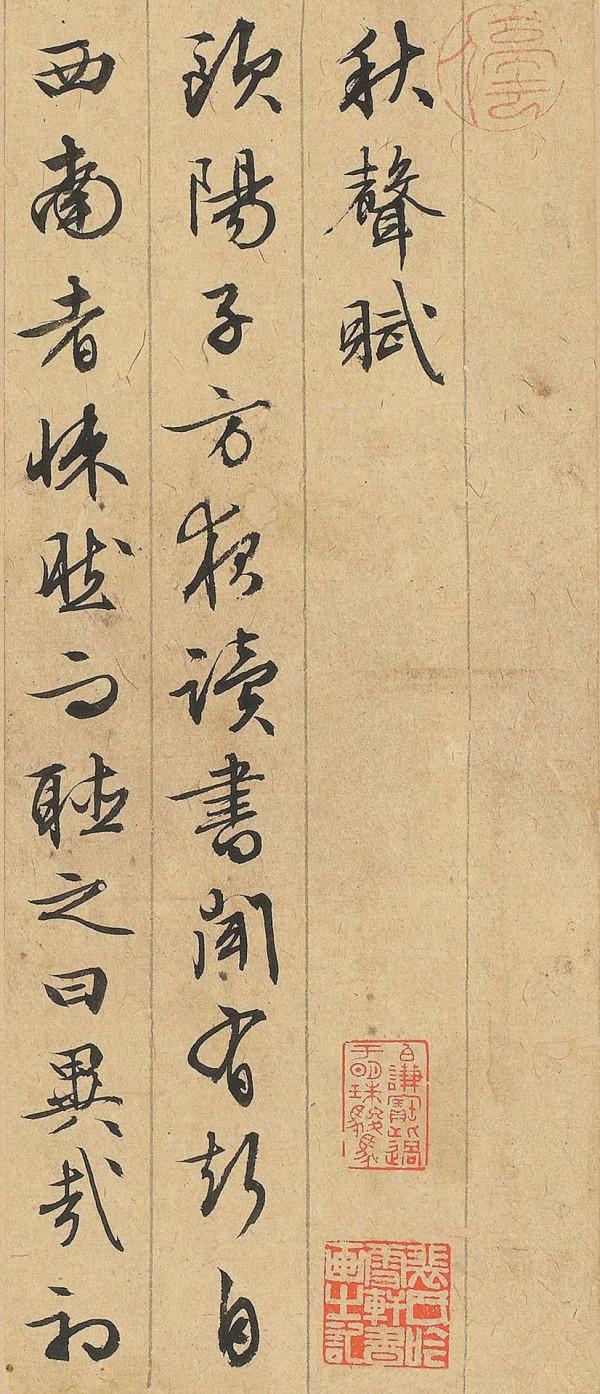 秋聲賦
歐陽子方夜讀書聞有聲自
西南者悚然而聽之曰異哉初